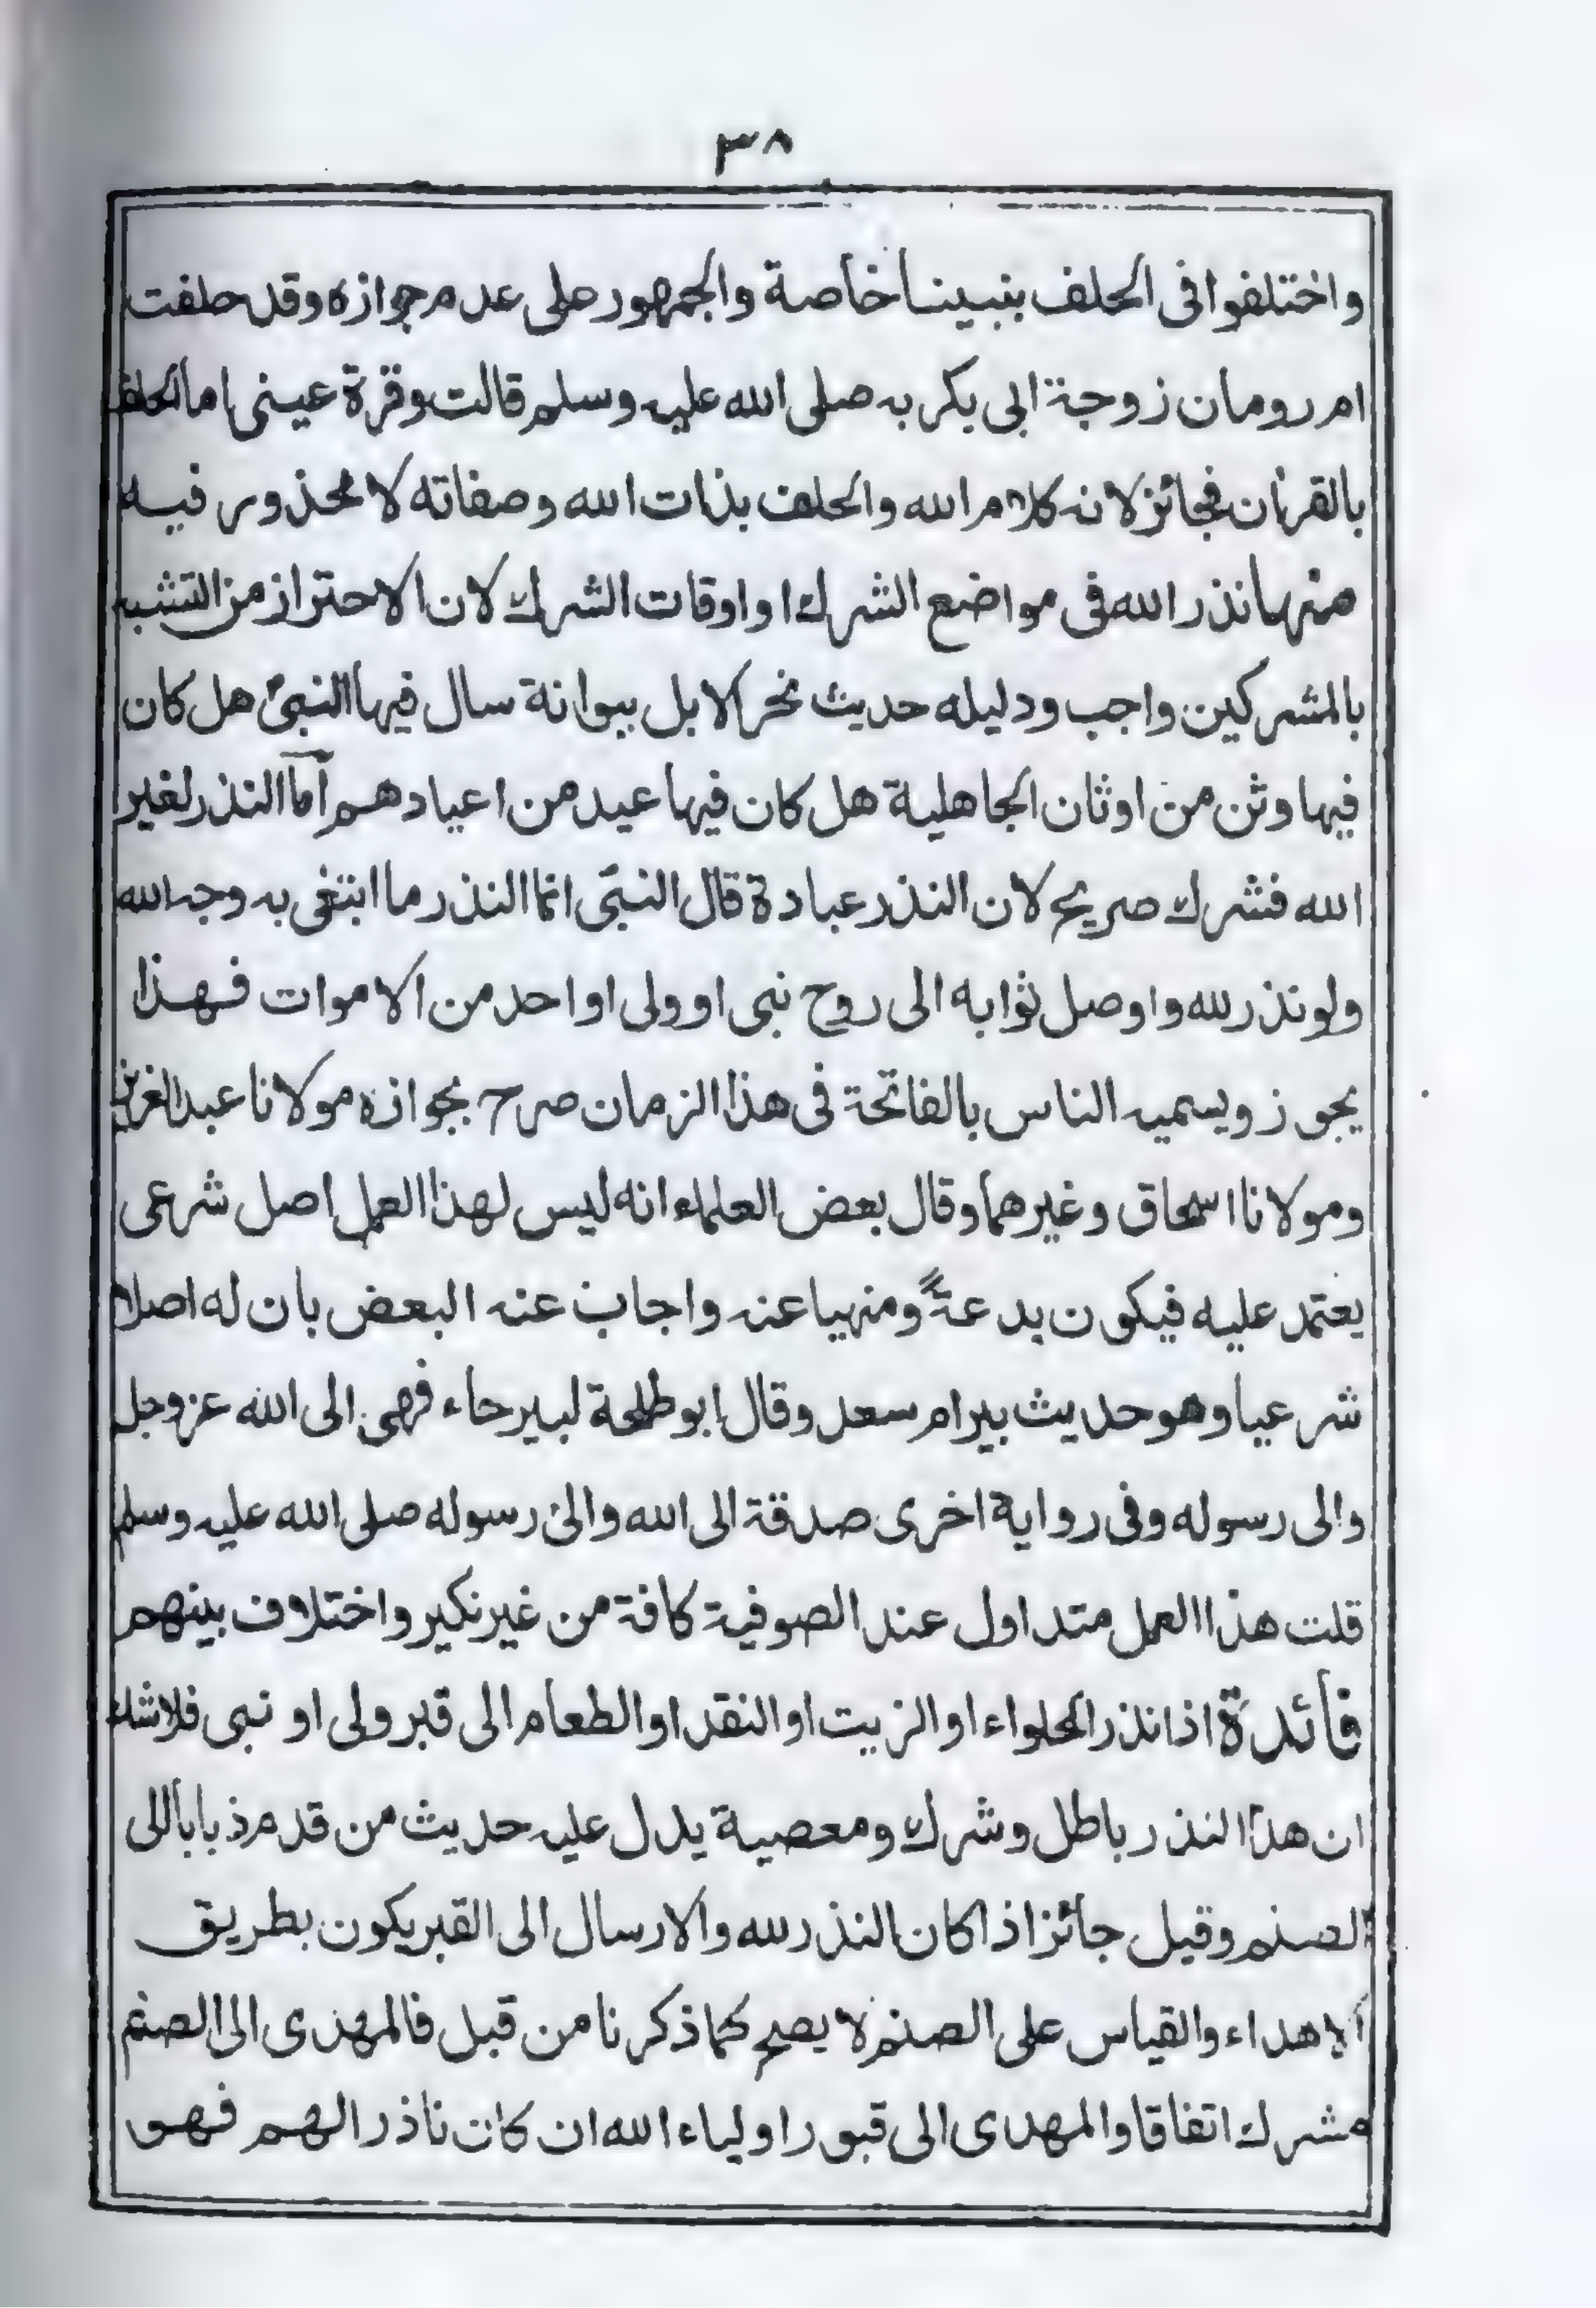 ٣٨
واختلفوا فی الحلف بنبینا خاصة والجمهور علی عدم جوازه وقد حلفت
ام رومان زوجة ابی بکر به صلی الله علیه وسلم قالت وقرة عینی اما الحلف
بالقرآن فجائز لانه کلام الله والحلف بذات الله وصفاته لا محذور فیه
منها نذر الله فی مواضع الشرك او اوقات الشرك لان الاحتراز من التشبه
بالمشرکین واجب ودلیله حدیث نحر الابل ببوانة سال فیها النبی هل کان
فیها وثن من اوثان الجاهلیة هل کان فیها عید من اعیادهم اما النذر لغیر
الله فشرك صریح لان النذر عبادة قال النبی انما النذر ما ابتغی به وجه الله
ولو نذر لله واوصل ثوابه الی روح نبی او ولی او احد من الاموات فهذا
یجوز ویسمیه الناس بالفاتحة فی هذا الزمان صرح بجوازه مولانا عبد العزیز
ومولانا اسحاق وغیرهما وقال بعض العلماء انه لیس لهذا العمل اصل شرعی
یعتمد علیه فیکون بدعةً ومنهیا عنه واجاب عنه البعض بان له اصلا
شرعیا وهو حدیث بیر ام سعد وقال ابو طلحة لبیرحاء فهی الی الله عز وجل
والی رسوله وفی روایة اخری صدقة الی الله والی رسوله صلی الله علیه وسلم
قلت هذا العمل متداول عند الصوفیة کافة من غیر نکیر واختلاف بینهم
فائدة اذا نذر الحلواء او الزیت او النقد او الطعام الی قبر ولی او نبی فلا شك
ان هذا النذر باطل وشرك ومعصیة یدل علیه حدیث من قدم ذبابا الی
الصنم وقیل جائز اذا کان النذر لله والارسال الی القبر یکون بطریق
الاهداء والقیاس علی الصنم لا یصح کما ذکرنا من قبل فالمهدی الی الصنم
مشرك اتفاقا والمهدی الی قبور اولیاء الله ان کان ناذرا لهم فهو